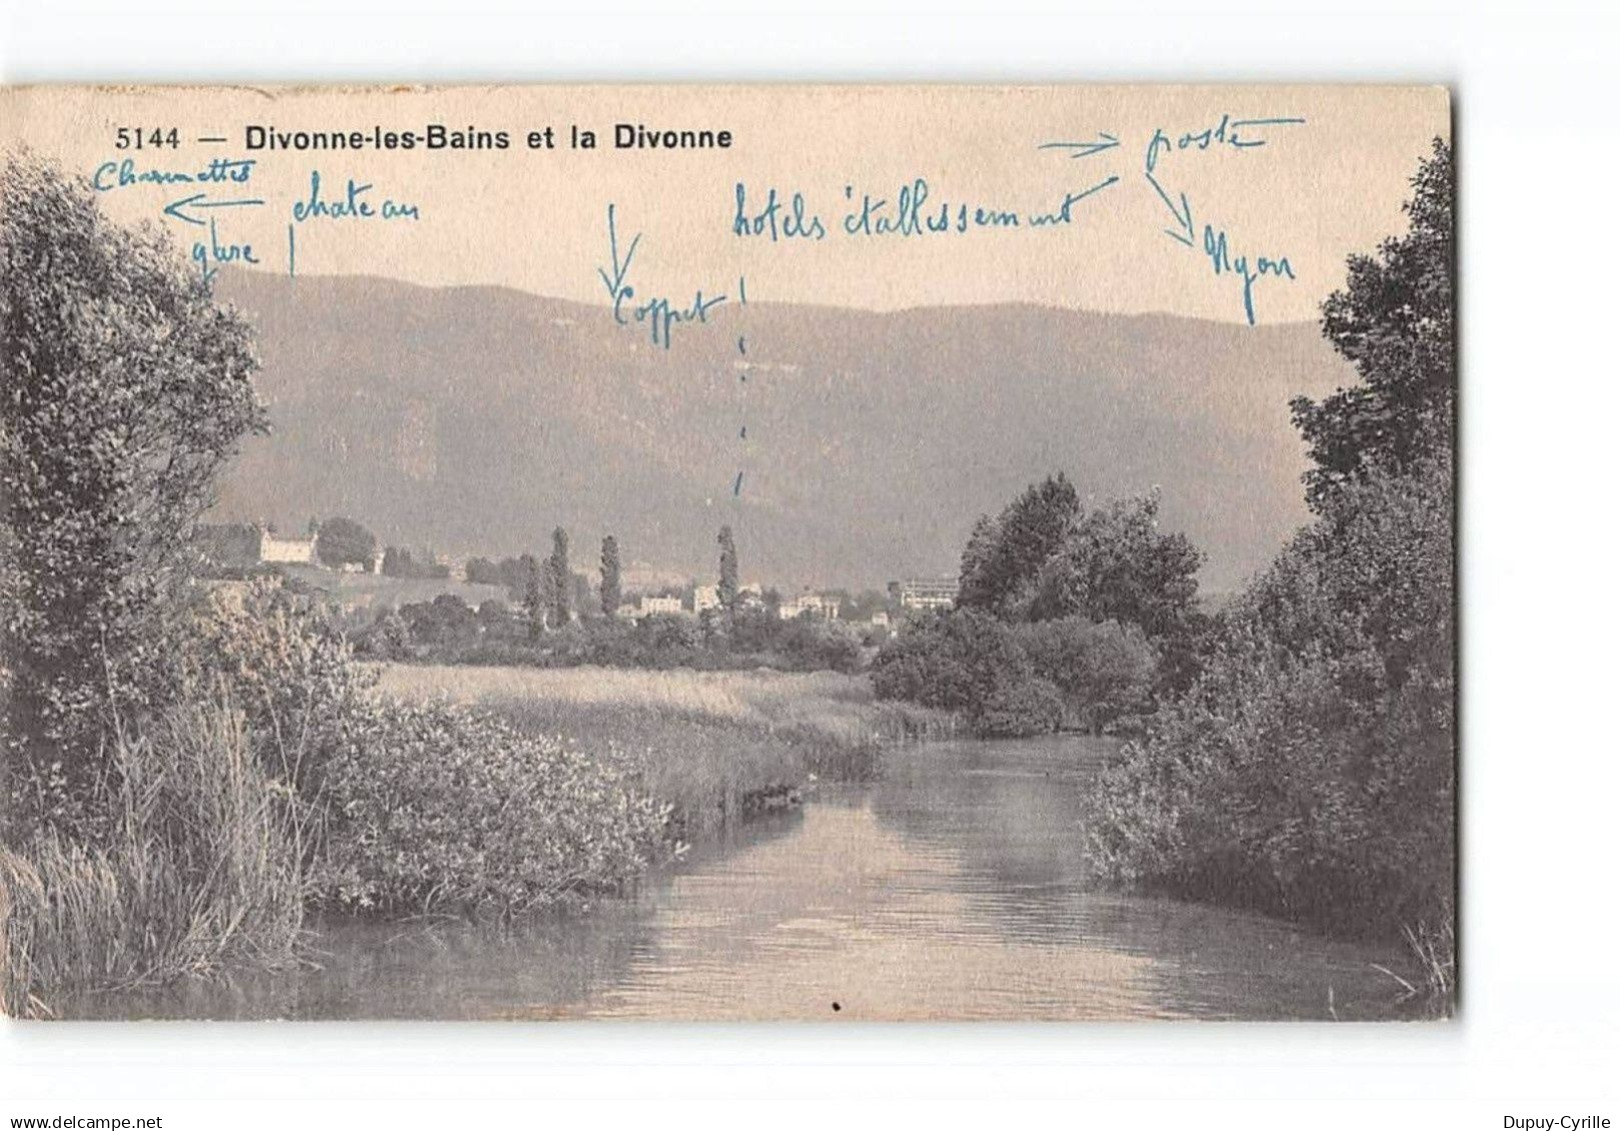 5144 — Divonne-les-Bains et la Divonne
Charmettes
chateau
hotels établissement
poste
Nyon
Coppet
www.delcampe.net
Dupuy-Cyrille